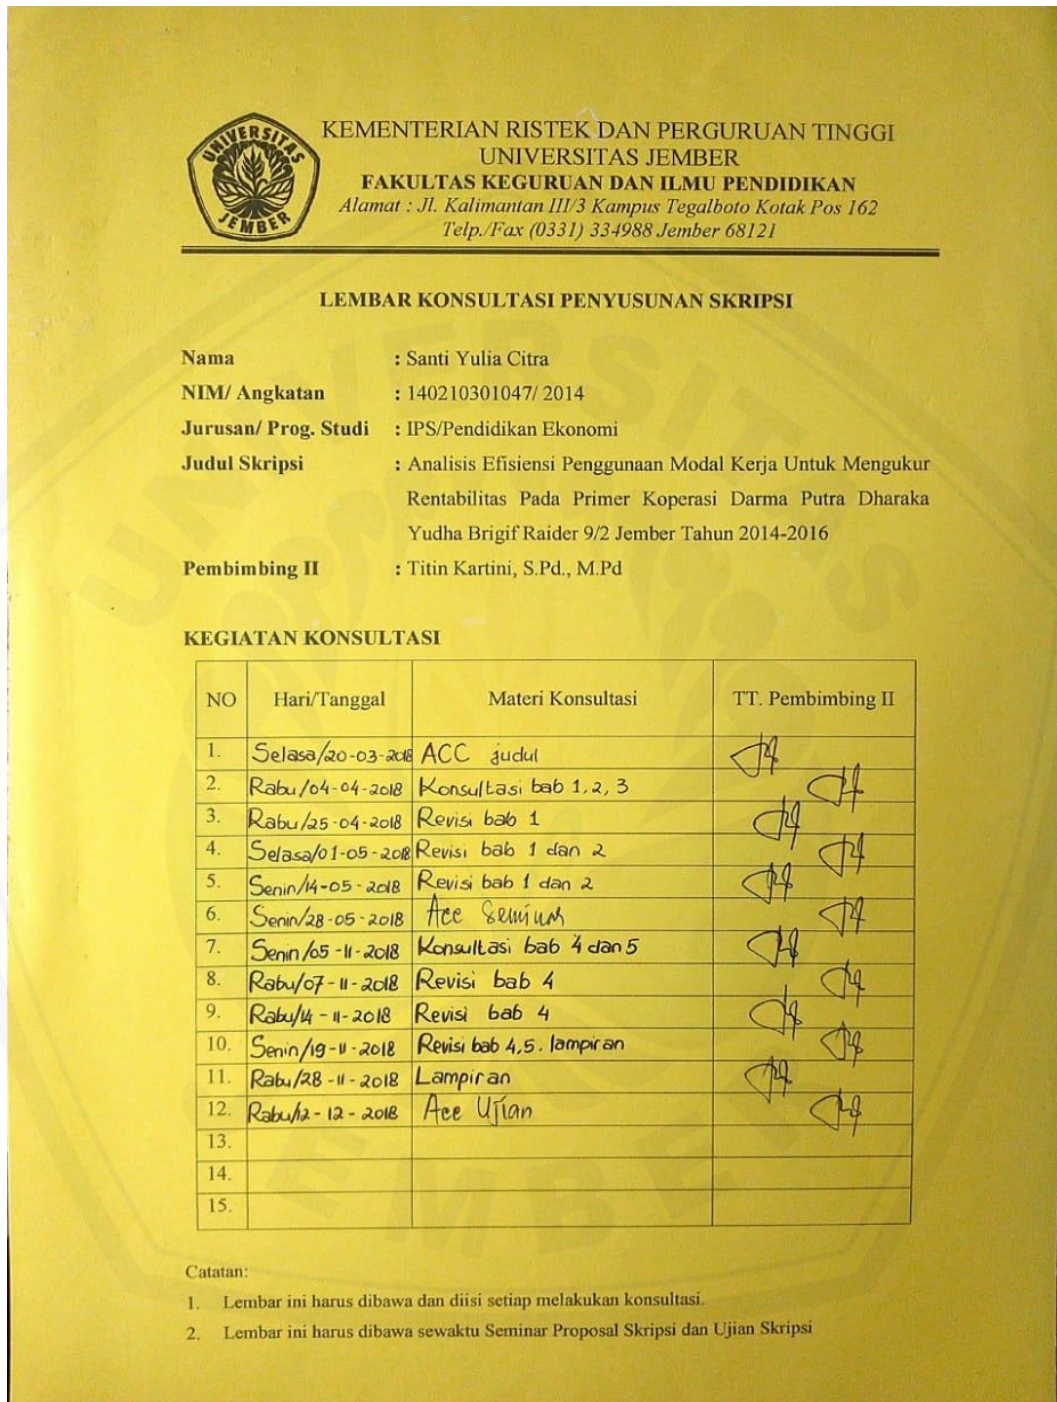 UNIVERSITAS
JEMBER
KEMENTERIAN RISTEK DAN PERGURUAN TINGGI
UNIVERSITAS JEMBER
FAKULTAS KEGURUAN DAN ILMU PENDIDIKAN
Alamat : Jl. Kalimantan III/3 Kampus Tegalboto Kotak Pos 162
Telp./Fax (0331) 334988 Jember 68121
LEMBAR KONSULTASI PENYUSUNAN SKRIPSI
Nama : Santi Yulia Citra
NIM/ Angkatan : 140210301047/ 2014
Jurusan/ Prog. Studi : IPS/Pendidikan Ekonomi
Judul Skripsi : Analisis Efisiensi Penggunaan Modal Kerja Untuk Mengukur
Rentabilitas Pada Primer Koperasi Darma Putra Dharaka
Yudha Brigif Raider 9/2 Jember Tahun 2014-2016
Pembimbing II : Titin Kartini, S.Pd., M.Pd
KEGIATAN KONSULTASI
NO Hari/Tanggal Materi Konsultasi TT. Pembimbing II
1. Selasa/20-03-2018 ACC judul
2. Rabu/04-04-2018 Konsultasi bab 1, 2, 3
3. Rabu/25-04-2018 Revisi bab 1
4. Selasa/01-05-2018 Revisi bab 1 dan 2
5. Senin/14-05-2018 Revisi bab 1 dan 2
6. Senin/28-05-2018 Acc Seminar
7. Senin/05-11-2018 Konsultasi bab 4 dan 5
8. Rabu/07-11-2018 Revisi bab 4
9. Rabu/14-11-2018 Revisi bab 4
10. Senin/19-11-2018 Revisi bab 4,5. lampiran
11. Rabu/28-11-2018 Lampiran
12. Rabu/12-12-2018 Acc Ujian
13.
14.
15.
Catatan:
1. Lembar ini harus dibawa dan diisi setiap melakukan konsultasi.
2. Lembar ini harus dibawa sewaktu Seminar Proposal Skripsi dan Ujian Skripsi